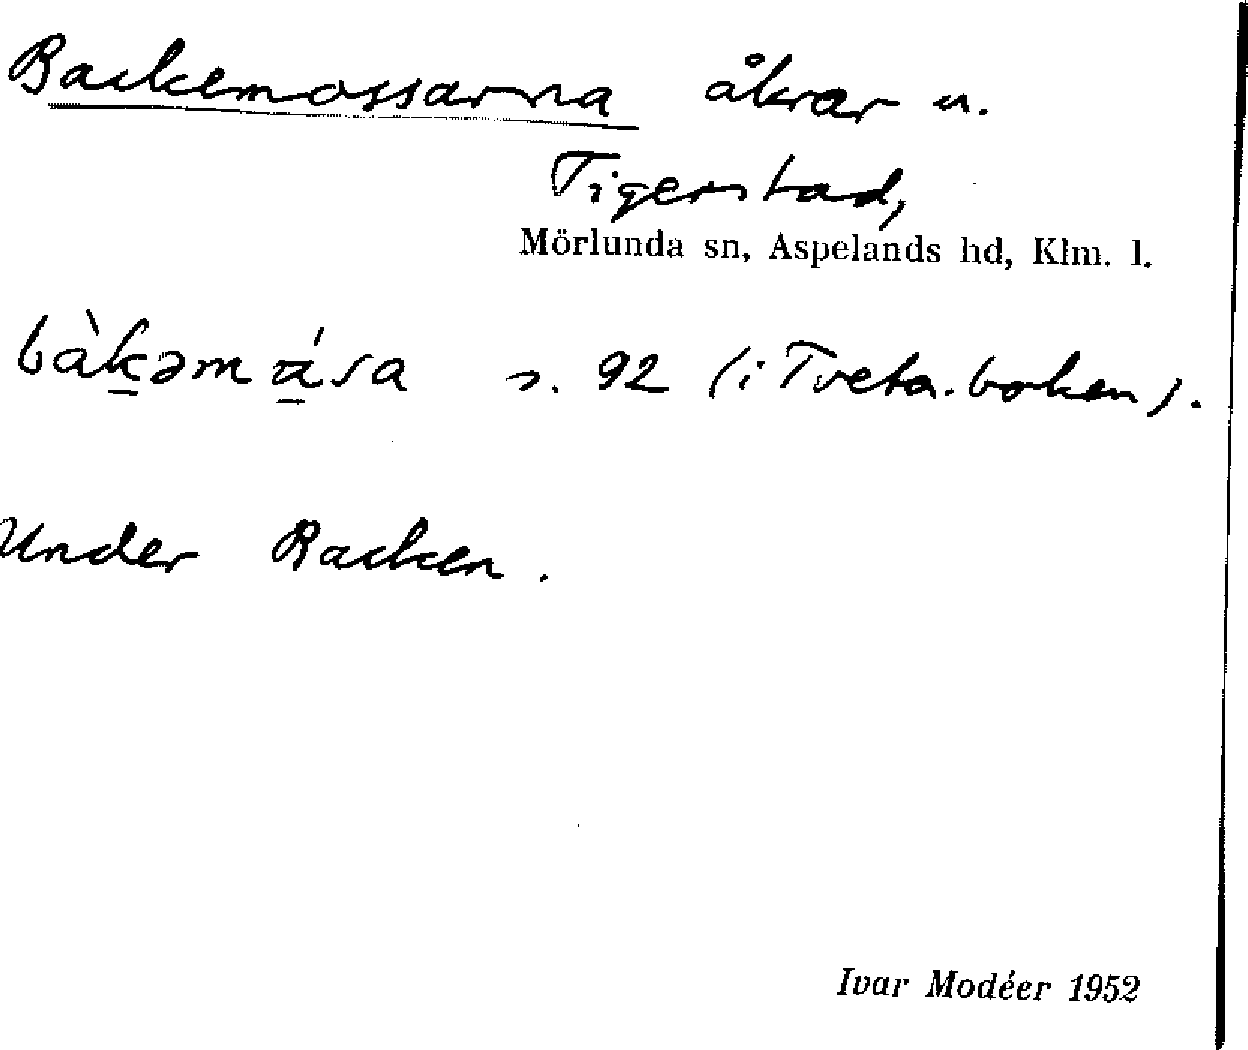 Backemossarna åkrar u.
Tigerstad,
Mörlunda sn, Aspelands hd, Klm. l.
bàk̲əmá̲sa s. 92 (i Tveta-boken).
Under Backen.
Ivar Modéer 1952